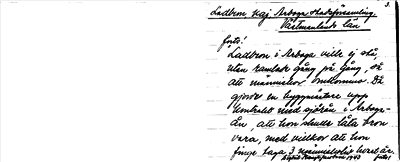 3.
Ladbron vid Arboga stadsförsamling.
Västmanlands län
foto!
Ladbron i Arboga ville ej stå,
utan ramlade gång på gång, så
att människor omkommo. Då
gjorde en byggmästare upp
kontrakt med sjörån i Arboga-
ån, att hon skulle låta bron
vara, med villkor att hon
finge taga 3 människoliv vart år.
1943